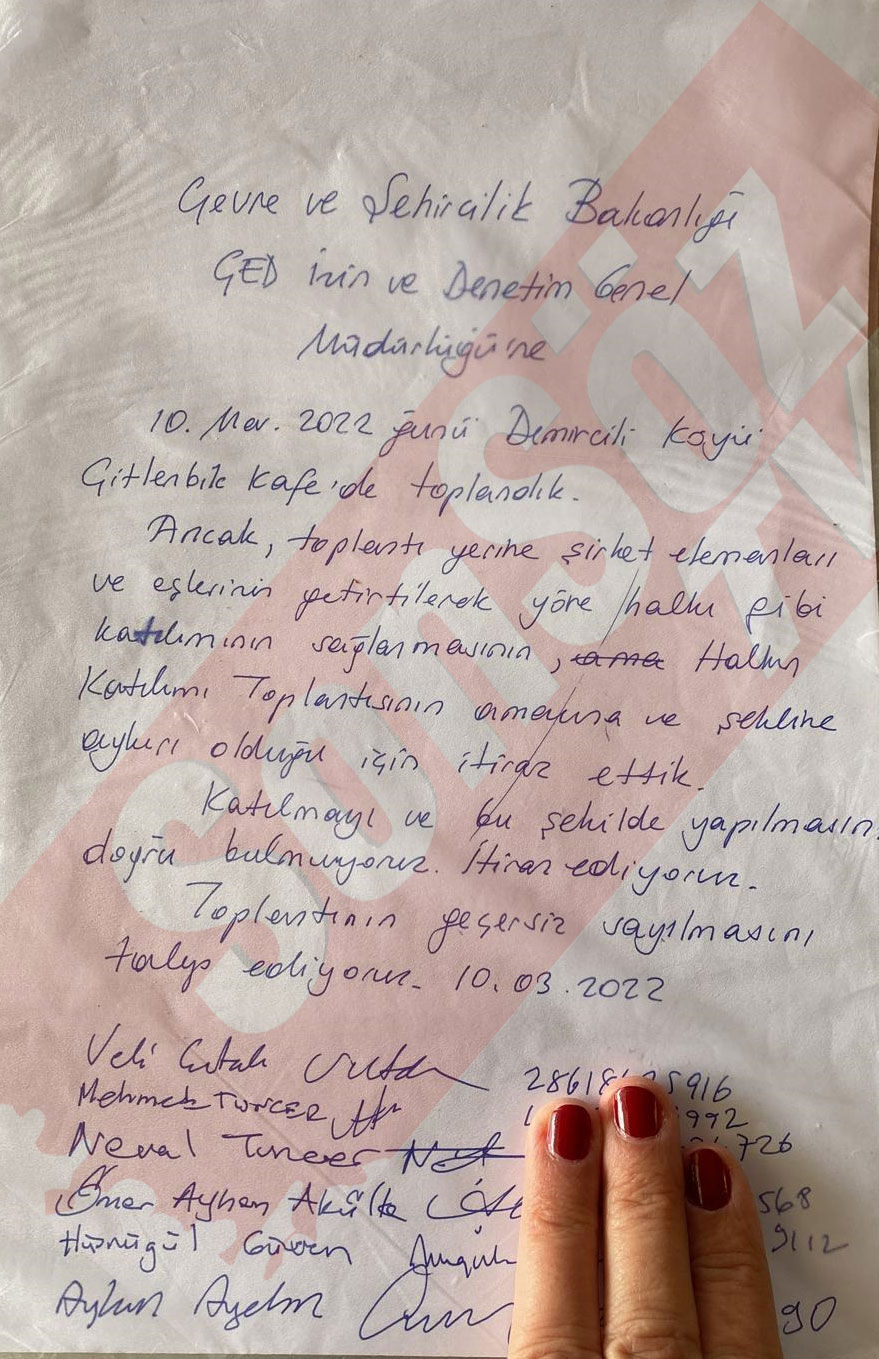 Çevre ve Şehircilik Bakanlığı
ÇED İzin ve Denetim Genel
Müdürlüğü'ne
10. Mar. 2022 günü Demircili Köyü
Çitlenbik Kafe'de toplandık.
Ancak, toplantı yerine şirket elemanları
ve eşlerinin getirtilerek yöre halkı gibi
katılımının sağlanmasının, ama Halkın
Katılımı Toplantısının amacına ve şekline
aykırı olduğu için itiraz ettik.
Katılmayı ve bu şekilde yapılmasını
doğru bulmuyoruz. İtiraz ediyoruz.
Toplantının geçersiz sayılmasını
talep ediyoruz. 10.03.2022
Veli
Mehmet TUNCER
Neval Tuncer
Ömer Ayhan
Hüsnügül Güven
Ayhan
SONSÖZ
TV